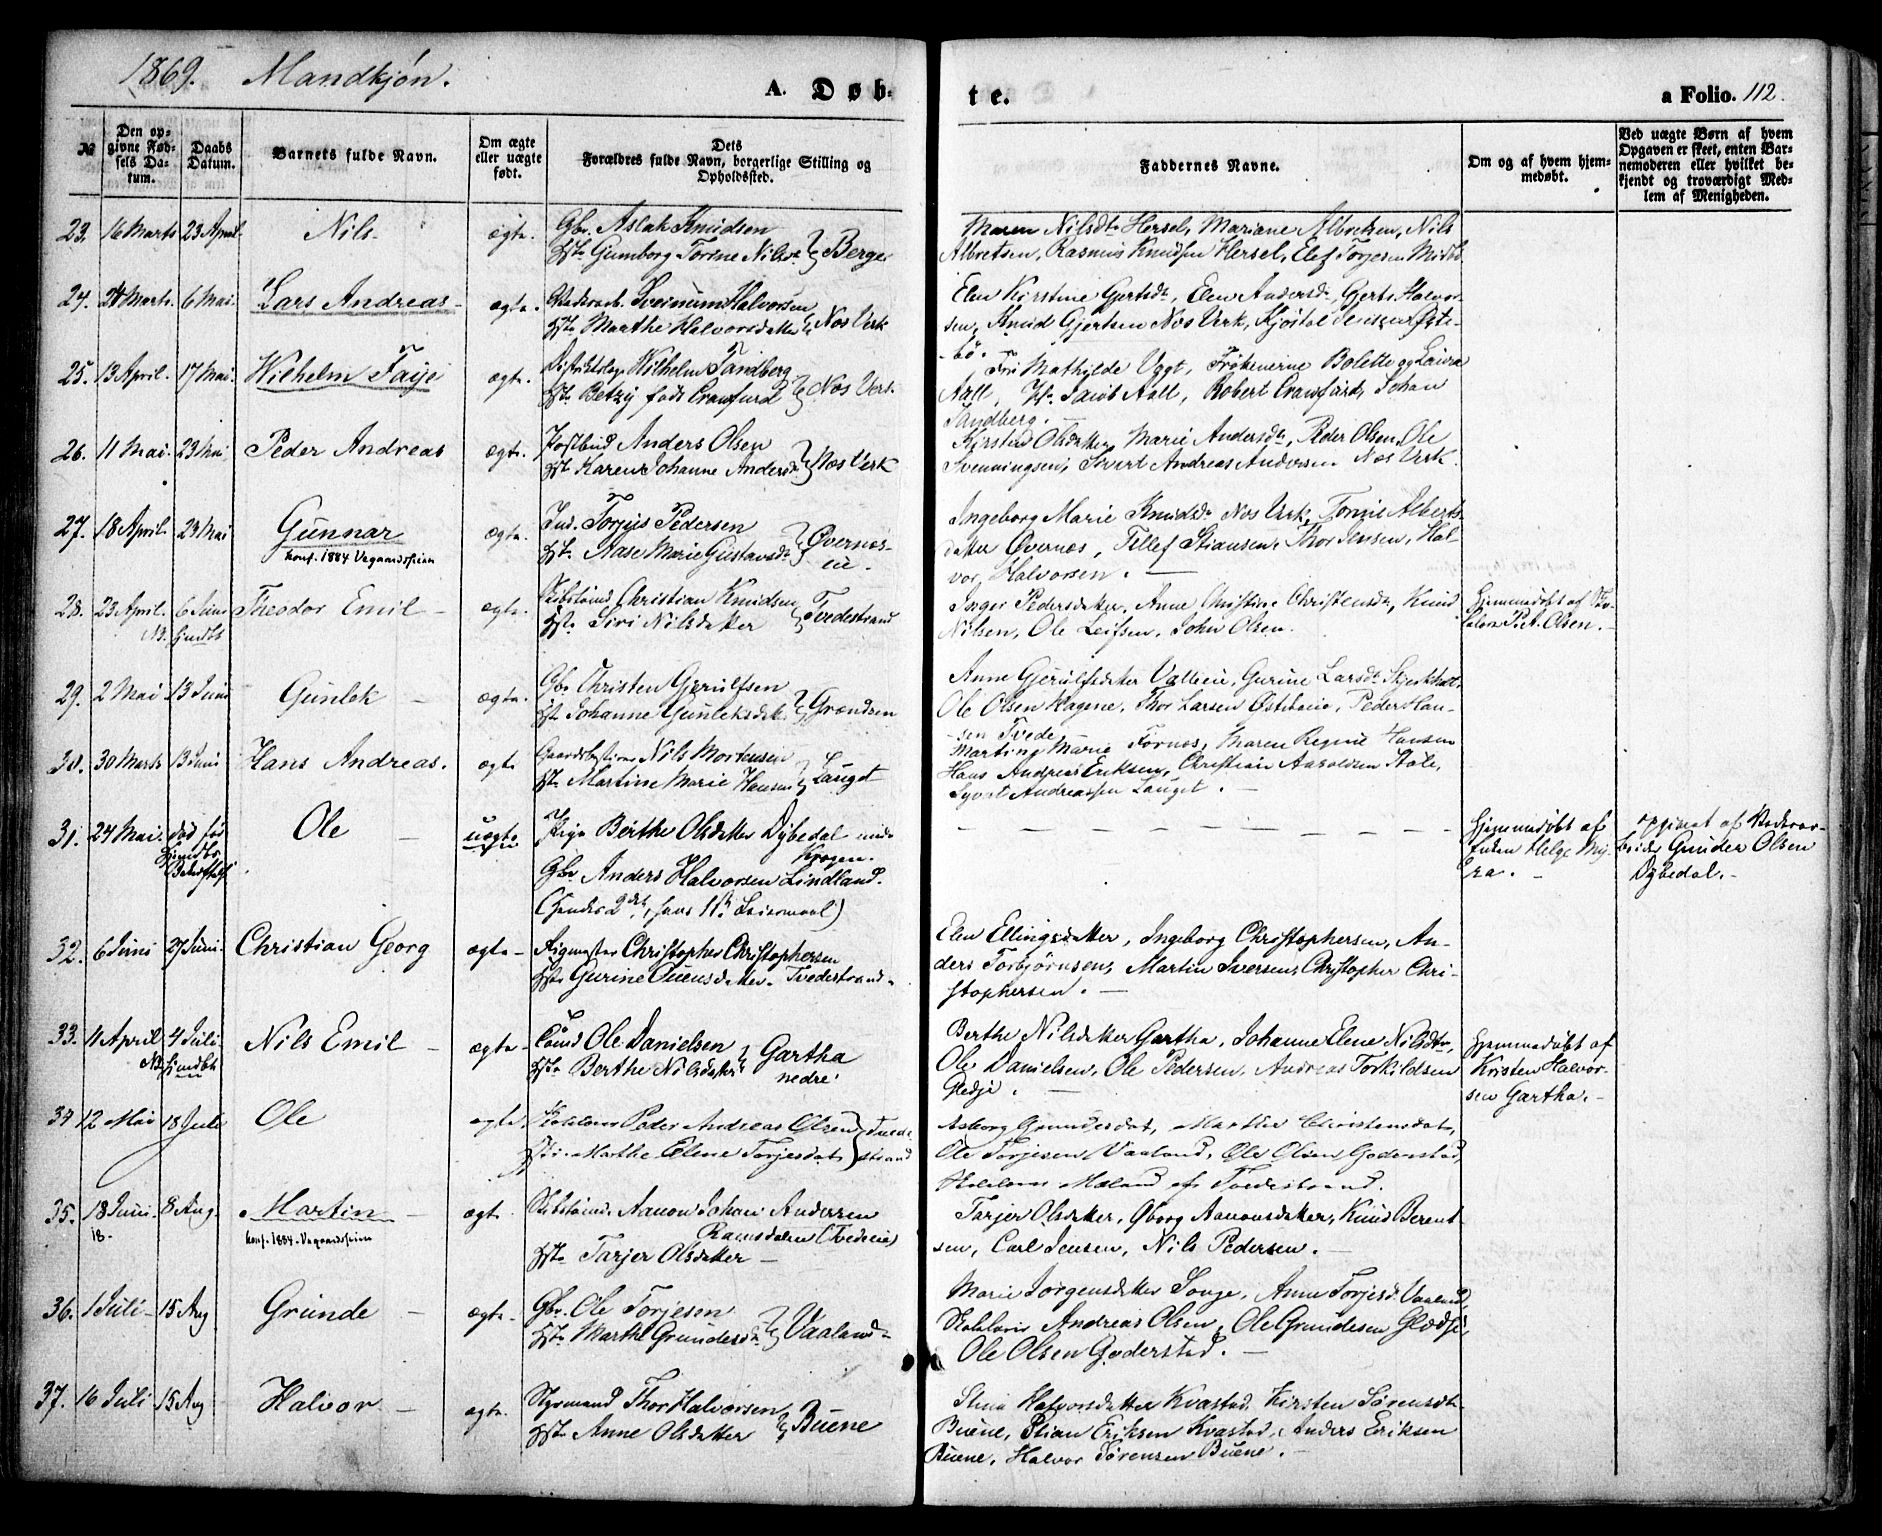 1869. Mandkjøn.
A. Døb-
te.
a Folio. 112.
№
Den op-
givne Fød-
sels Da-
tum.
Daabs
Datum.
Barnets fulde Navn.
Om ægte
eller uægte
født.
Dets
Forældres fulde Navn, borgerlige Stilling og
Opholdssted.
Faddernes Navne.
Om og af hvem hjem-
medøbt.
Ved uægte Børn af hvem
Opgaven er skeet, enten Bar-
nemoderen eller hvilket be-
kjendt og troværdigt Med-
lem af Menigheden.
23. 16 Marts 23 April Nils ægte. Gbr. Aslak Knudsen
Hst. Gumborg Torine Nilsdr Berge
Maren Nilsdtr Hersel, Mariane Albretsen, Nils
Albretsen, Rasmus Knudsen Hersel, Elef Torjesen
24. 24 Marts. 6 Mai. Lars Andreas ægte. Sveinum Halvorsen
Hst. Marthe Halvorsdatter Nes Verk
Elen Kirstine Gertsdtr, Elen Andersdr, Gerts Halvor-
sen, Knud Gjertsen Nes Verk, Kjøstol Jensen Øste-
bø.
25. 13 April. 17 Mai. Wilhelm Faye ægte. Distriktslæge Wilhelm Sandberg
Hst. Betzy født Crawfurd Nes Verk
Fru Mathilde Vogt, Frøknerne Bolette og Laura
Aall, Hr. Jacob Aall, Robert Crawfurd, Johan
Sandberg.
26. 11 Mai. 23 Mai Peder Andreas ægte. Postbud Anders Olsen
Hst. Karen Johanne Andersdr Nes Verk
Kirsten Olsdatter, Marie Andersdr, Peder Olsen, Ole
Svenningsen, Sivert Andreas Andersen Nes Verk.
27. 18 April. 23 Mai Gunnar ægte. Ind. Torjus Pedersen
konf. 1884 Vegaardsheien
Hst. Aase Marie Gustavsdr Øvernes-
ei.
Ingeborg Marie Knudsdr Nes Verk, Tomine Alberts-
datter Øvernes, Tellef Stiansen, Thor Jensen, Hal-
vor Halvorsen.
28. 23 April. 6 Juni Theodor Emil ægte. Christian Knudsen
Nb. hjmdbt
Hst. Siri Nilsdatter Tvedestrand
Inger Pedersdatter, Anne Christine Christensdr, Knud
Nilsen, Ole Leifsen, John Olsen.
Hjemmedøbt af Sko-
lelærer P. A. Olsen.
29. 2 Mai 13 Juni Gunlek ægte. Gbr Christen Gjerulfsen
Hst Johanne Gunleksdatter Grændsen
Anne Gjerulfsdatter Valleie, Gurine Larsdr
Ole Olsen Hagene, Thor Larsen Østebøeie, Peder Han-
sen Tvede
30. 30 Marts 13 Juni Hans Andreas. ægte Gaardsbestyrer Nils Mortensen
Hst. Martine Marie Hansen Lauget
Martine Marie Fornes, Maren Regine Hansen
Hans Andreas Eriksen, Christian Aaroldsen Stole,
Syvert Andreassen Lauget.
31. 24 Mai. død før Ole uægte Pige Berthe Olsdatter Dybedal
hjemdbt
uægte
Gbr Anders Halvorsen Lindland.
(Hendes 2det, hans 1ste Leiermaal)
Hjemmedøbt af
Enken Helge My-
ra.
opgivet af Vedarar-
beider Gunder Olsen
Dybedal.
32. 6 Juni 27 Juni. Christian Georg ægte Rigmester Christopher Christophersen
Hst Gurine Ouensdatter. Tvedestrand.
Elen Ellingsdatter, Ingeborg Christophersen, An-
ders Torbjørnsen, Martin Iversen, Christopher Chri-
stophersen.
33. 11 April 4 Juli. Nils Emil ægte Ole Danielsen
Nb. hjmdbt
Hst. Berthe Nilsdatter Gartha
nedre
Berthe Nilsdatter Gartha, Johanne Elene Nilsdtr,
Ole Danielsen, Ole Pedersen, Andreas Torkildsen
Gledje.
Hjemmedøbt af
Kristen Halvor-
sen Gartha.
34 12 Mai 18 Juli Ole ægte. Skolelærer Peder Andreas Olsen Tvede-
Hst. Marthe Elene Torjesdat strand
Asborg Grundesdat, Marthe Christensdat,
Ole Torjesen Vaaland, Ole Olsen Goderstad,
Skolelærer Mæland af Tvedestrand.
35. 18 Juni. 8 Aug. Martin ægte. Aanon Johan Andersen
18
konf. 1884. Vegaardsheien
Ramsdalen (Tvedeeie)
Hst. Tarjer Olsdatter
Tarjer Olsdatter, Øborg Aanonsdatter, Knud Berent-
sen, Carl Jensen, Nils Pedersen.
36. 1 Juli 15 Aug Grunde ægte. Gbr. Ole Torjesen
Hst. Marthe Grundesdr Vaaland
Marie Jørgensdatter Songe, Anne Torjesd. Vaaland,
Skolelærer Andreas Olsen, Ole Grundesen Gledje,
Ole Olsen Goderstad.
37. 16 Juli 15 Aug Halvor ægte. Styrmand Thor Halvorsen
Hst. Anne Olsdatter Buene
Stina Halvorsdatter Kvastad, Kirsten Sørensdtr
Buene, Stian Eriksen Kvastad, Anders Eriksen
Buene, Halvor Sørensen Buene.